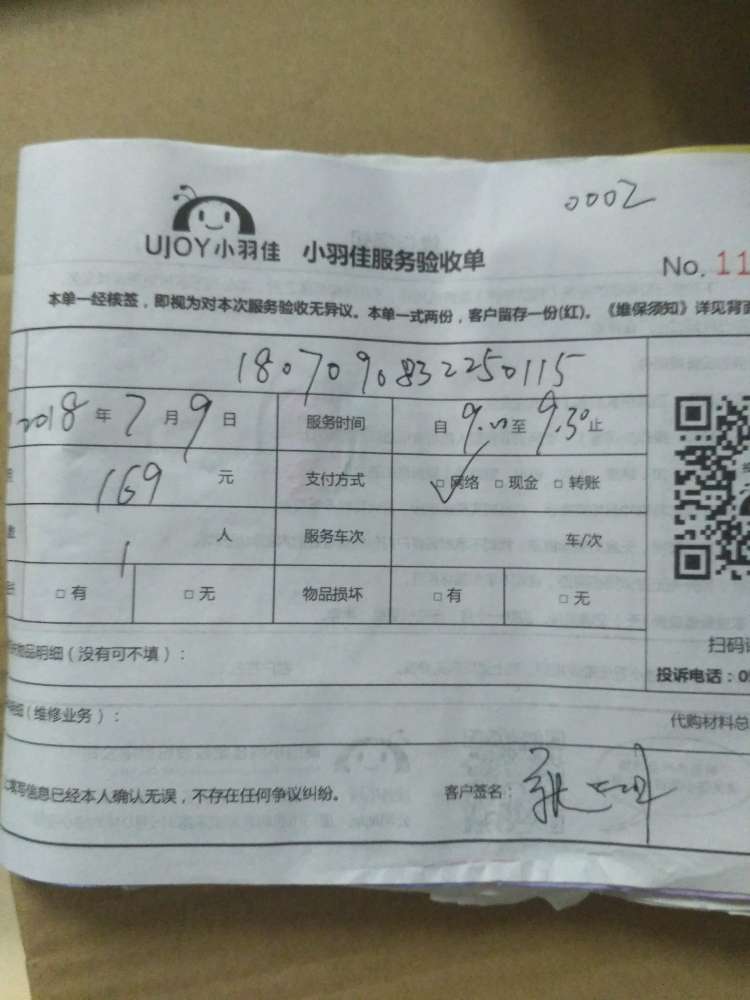 0002
UJOY小羽佳 小羽佳服务验收单
No. 11
本单一经核签，即视为对本次服务验收无异议。本单一式两份，客户留存一份(红)。《维保须知》详见背面
1807090832250115
2018 年 7 月 9 日 服务时间 自 9:00 至 9:30 止
169 元 支付方式 □ 网络 □ 现金 □ 转账
1 人 服务车次 车/次
□ 有 □ 无 物品损坏 □ 有 □ 无
物品明细（没有可不填）：
扫码
投诉电话：0
明细（维修业务）：
代购材料总
填写信息已经本人确认无误，不存在任何争议纠纷。 客户签名：